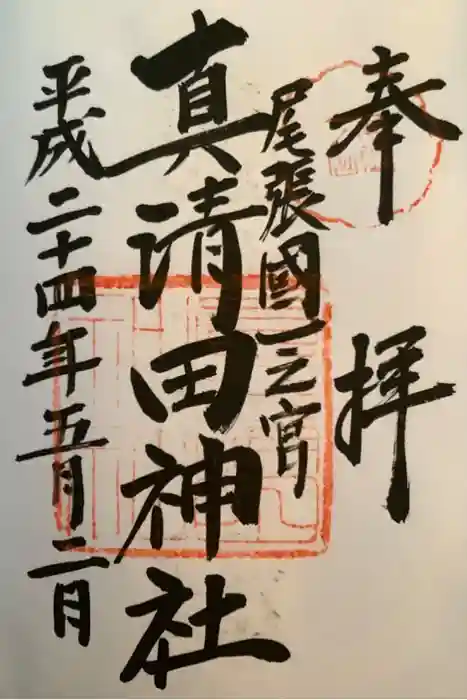 奉拝
尾張國一之宮
真清田神社
平成二十四年五月二日